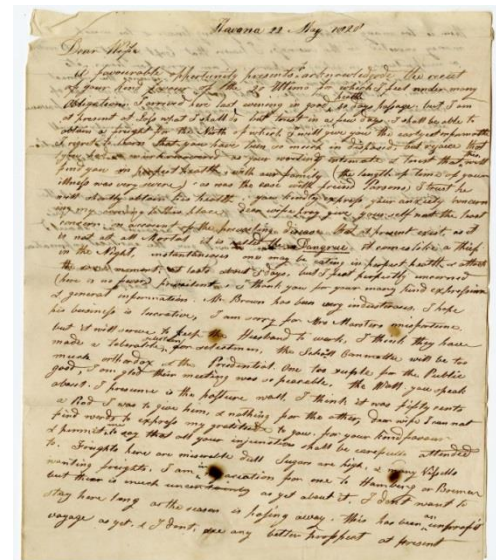 Havana 22 May 1828
Dear Wife
A favourable opportunity presents to acknowledge the receit
of your kind favour of the 20 Ultimo for which I feel under many
Obligations I arrived here last evening in 10 days passage, but I am
at present at loss what I shall do but trust in a few days I shall be able to
obtain a freight for the North of which I will give you the earliest information
I regret to learn that you have been so much indisposed but rejoice that
I trust that this will
find you in perfect health, with our family (the length of time of your
illness was very severe) as was the case with friend Parsons, I trust he
will shortly obtain his health. you kindly express your anxiety concern
in my coming to this place, dear wife pray give yourself not the least
concern on account of the prevailing disease that at present exist, as it
is not at all Mortal it is called the Dangrue. it comes like a thief
in the Night, instantaneous one may be eating in perfect health & attack
the next moment, it lasts about 3 days, but I feel perfectly unconcerned
(here is no prevalent) I thank you for your many kind expressions
& general information. Mr Brown has been very industrious, I hope
his business is lucrative, I am sorry for Mrs Marsters misfortune,
but it will serve to keep the Husband to work, I think they have
made a tolerable selection for selectmen, the School Committe will be too
much orthodox & the Prudential One too suple for the Public
good, I am glad their meeting was so peacable, the Wall you speak
about. I presume is the pasture wall, I think it was fifty cents
a Rod I was to give him, & nothing for the other, dear wife I can not
find words to express my gratitude to you, for your kind favour
& permit me to say that all your injunctions shall be carefully attended
to. Freights here are miserable dull Sugar are high, & many Vessells
wanting freights. I am in for me to Hamburg or Bremen
but there is much uncertainty as yet about it. I dont want to
stay here long as the season is passing away. this has been unprofit
voyage as yet. & I dont see any better prospect at present